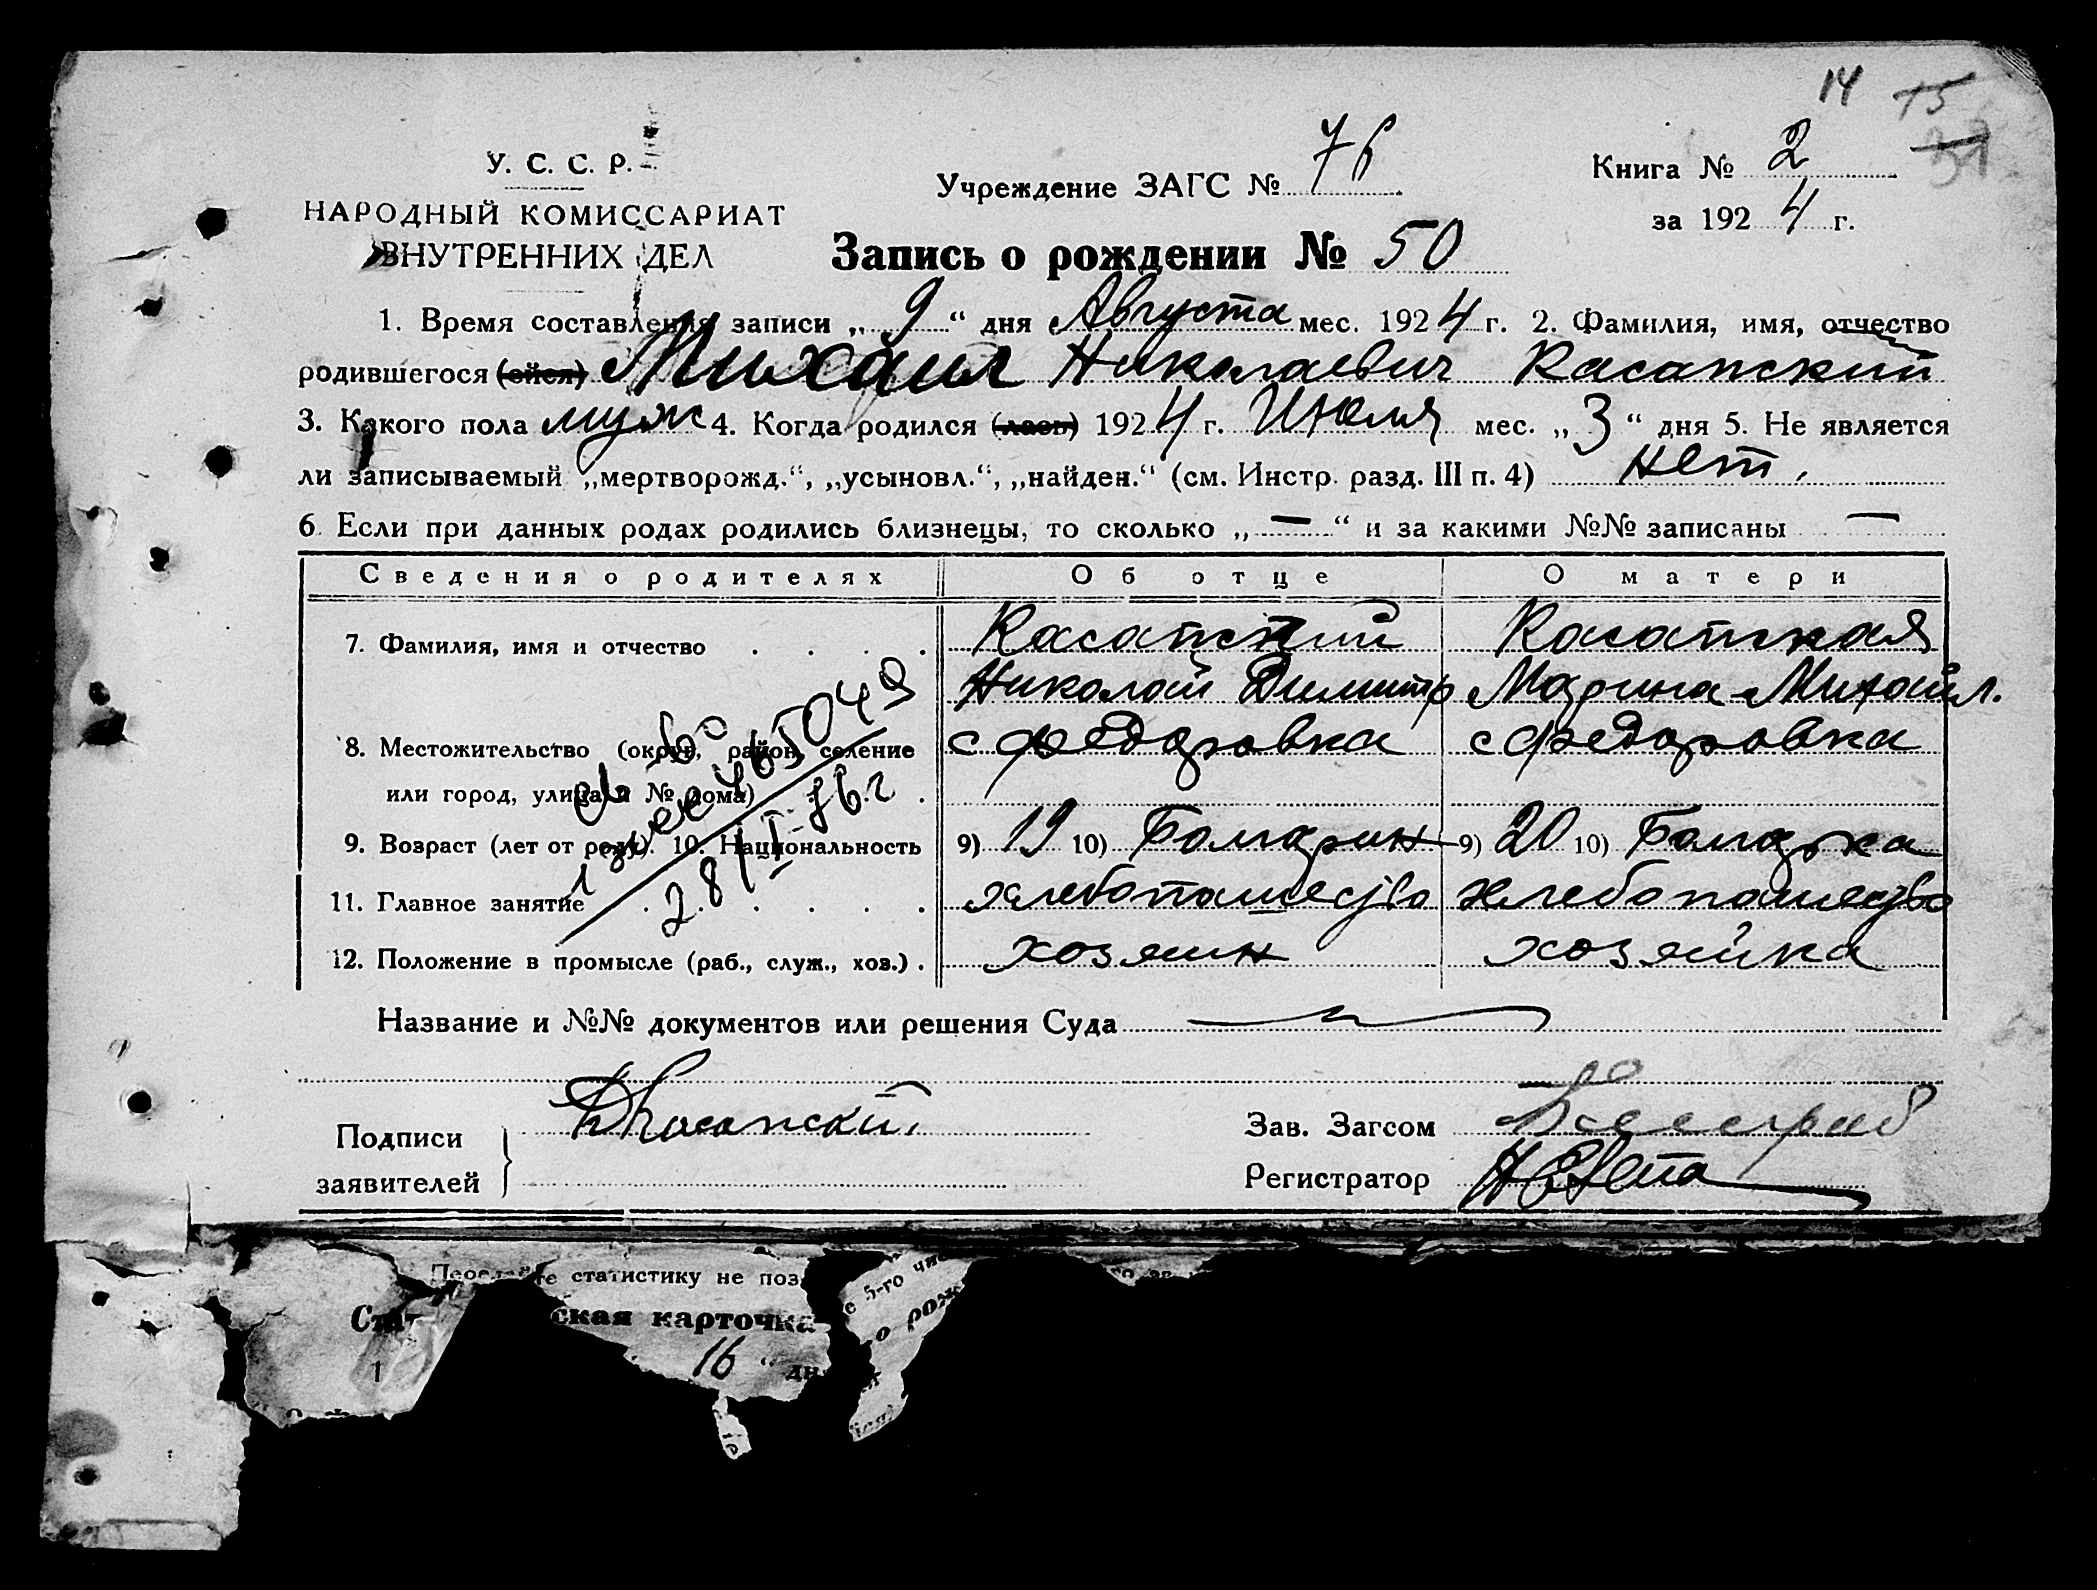 14 15
У. С. С. Р.
НАРОДНЫЙ КОМИССАРИАТ
ВНУТРЕННИХ ДЕЛ
Учреждение ЗАГС № 76
Книга № 2
за 1924 г.
Запись о рождении № 50
1. Время составления записи „ 9 “ дня Августа мес. 1924 г. 2. Фамилия, имя, отчество
родившегося (ейся) Михаил Николаевич Касапский
3. Какого пола муж 4. Когда родился (лась) 1924 г. Июля мес. „ 3 “ дня 5. Не является
ли записываемый „мертворожд.“, „усыновл.“, „найден.“ (см. Инстр. разд. III п. 4) нет.
6. Если при данных родах родились близнецы, то сколько „ — “ и за какими №№ записаны —
Сведения о родителях Об отце О матери
7. Фамилия, имя и отчество . . . . Касапский Касапская
Николай Димитр Марина Михайл.
8. Местожительство (округ, район, селение с Федоровка с Федоровка
или город, улица и № дома)
9. Возраст (лет от роду). 10. Национальность 9) 19 10) Болгарин 9) 20 10) Болгарка
11. Главное занятие . . . . . хлебопашество хлебопашество
12. Положение в промысле (раб., служ., хоз.) . хозяин хозяйка
28/I-76 г
Название и №№ документов или решения Суда
Подписи
заявителей
Касапский
Зав. Загсом
Регистратор
статистику не поз
ская карточка
16 “ дн
е 5-го чи
о рож
1